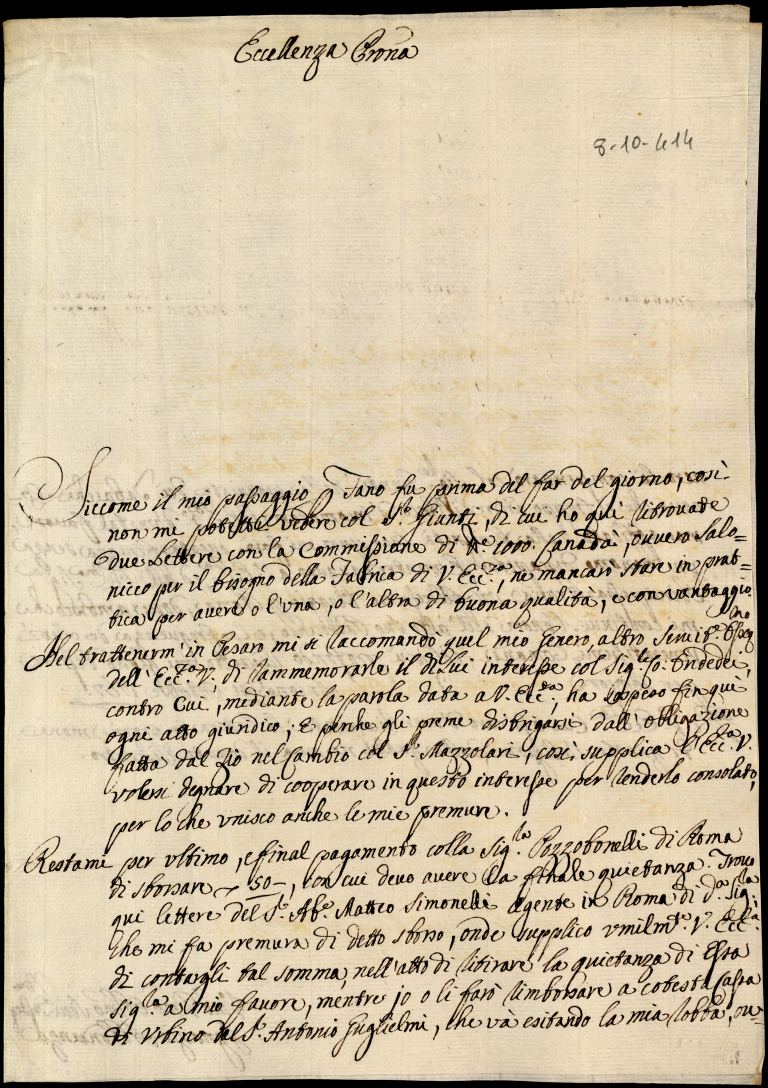 Eccellenza Prona
8-10-414
Siccome il mio passaggio p Fano fu prima del far del giorno, così
non mi potetti vedere col Sr. Giunti, di cui ho quì ritrovate
due Lettere con la Commissione di 1000. Canadà, ovvero Salo=
nicco per il bisogno della Fabrica di V. Ecc.za, ne mancarò stare in prat=
tica per avere o l'una, o l'altra di buona qualità, e con vantaggio.
Nel trattenerm' in Pesaro mi si raccomandò quel mio Genero, altro
dell' Ecc.za V. di rammemorarle il di Lui interesse col Sig.r
contro Cui, mediante la parola data a V. Ecc.za, ha sospeso fin quì
ogni atto giuridico; E perche gli preme disbrigarsi dall' obligazione
fatta dal Zio nel Cambio col Sr. Mazzolari, così supplica l'Ecc.za V.
volersi degnare di cooperare in questo interesse per renderlo consolato,
per lo che unisco anche le mie premure.
Restami per ultimo, e final pagamento colla Sig.ra Pozzobonelli di Roma
di sborsare 50, con cui devo avere la finale quietanza. Trovo
qui lettere del Sr. Ab.e Matteo Simonelli Agente in Roma di d.a Sig.ra,
che mi fa premura di detto sborso, onde supplico umilm.te V. Ecc.za
di contargli tal somma, nell'atto di ritirare la quietanza di Essa
Sig.ra a mio favore, mentre io o li farò rimborsare a cotesta Cassa
di Urbino dal Sr. Antonio Guglielmi, che và esitando la mia robba, ov=